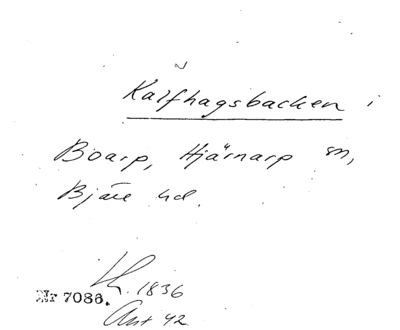 Kalfhagsbacken i
Boarp, Hjärnarp sn,
Bjäre hd.
Nr 7086. 1836
Ant 42